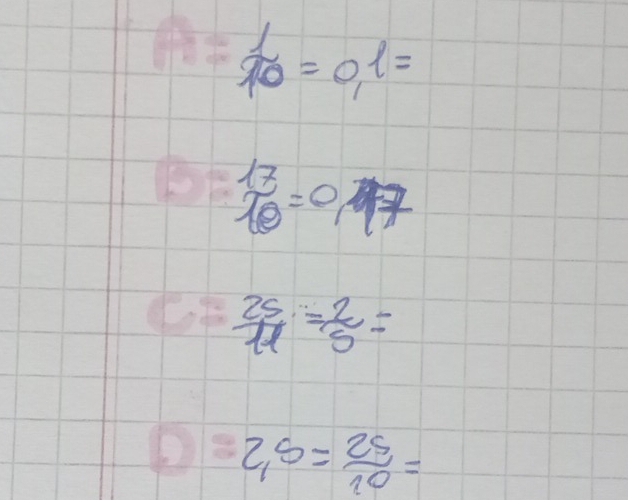 A = 1/10 = 0,1 =
B = 17/10 = 0,17
C = 25/11 = 2/5 =
D = 2,5 = 25/10 =